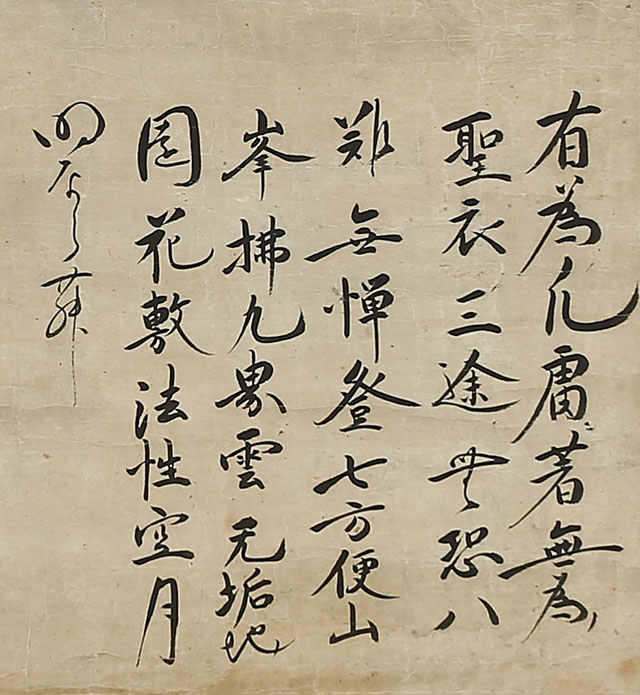 有為凡膚著無為
聖衣三途無恐八
難無憚登七方便山
峯拂九界雲无垢地
園花敷法性空月
明なら